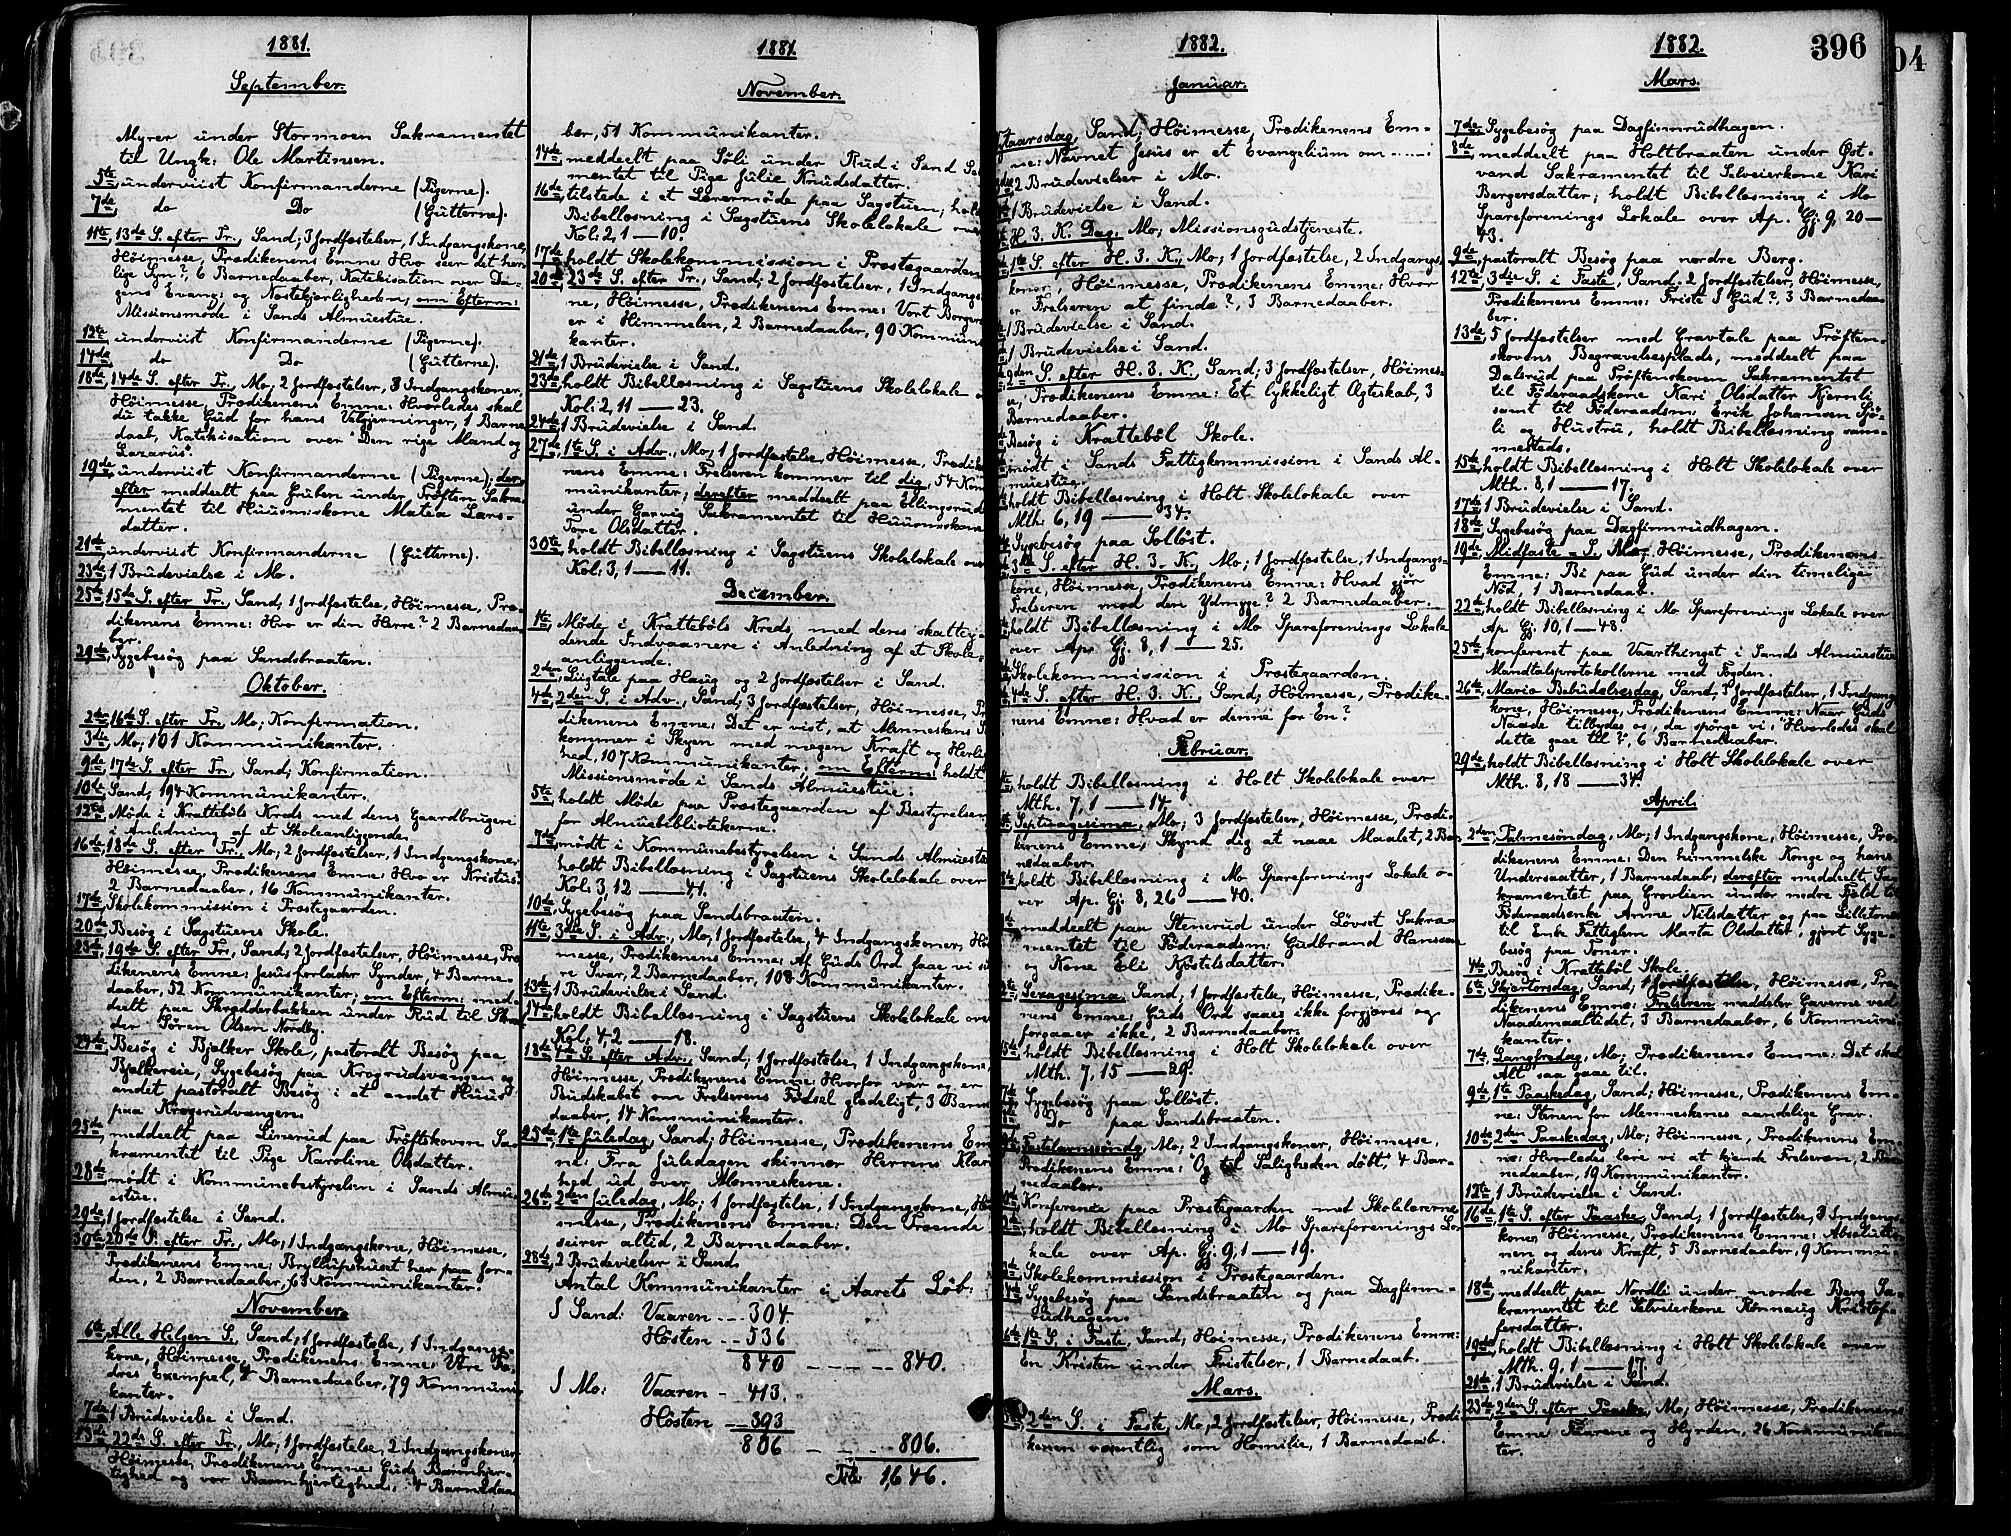 1881.
September.
Myrer under Stormoen Sakramentet
til Ungk: Ole Martinsen.
5te underviist Konfirmanderne (Pigerne).
7de do Do (Gutterne).
11te 13de S. efter Tr., Sand; 3 Jordfæstelser, 1 Indgangskone,
Høimesse, Prædikenens Emne: Hvo seer det her-
lige Syn?, 6 Barnedaaber, Katekisation over Da-
gens Evang: og Næstekjærligheden, om Efterm:
Missionsmøde i Sands Almuestue.
12te underviist Konfirmanderne (Pigerne).
14de do Do (Gutterne).
18de 14de S. efter Tr., Mo; 2 Jordfæstelser, 3 Indgangskoner,
Høimesse, Prædikenens Emne: Hvorledes skal
du takke Gud for hans Velgjerninger, 1 Barne-
daab, Katekisation over "Den rige Mand og
Lazarus".
19de underviist Konfirmanderne (Pigerne); der-
efter meddeelt paa Gruben under Trøften Sakra-
mentet til Huusmiskone Matea Lars-
datter.
21de underviist Konfirmanderne (Gutterne).
23de 1 Brudevielse i Mo.
25de 15de S. efter Tr., Sand; 1 Jordfæstelse, Høimesse, Præ-
dikenens Emne: Hvo er din Herre? 2 Barnedaa-
ber.
29de Sygebesøg paa Sandsbraaten.
Oktober.
2de 16de S. efter Tr., Mo; Konfirmation.
3de Mo; 101 Kommunikanter.
9de 17de S. efter Tr., Sand; Konfirmation.
10de Sand; 194 Kommunikanter.
12te Møde i Kratteböls Kreds med dens Gaardbrugere
i Anledning af et Skoleanliggende.
16de 18de S. efter Tr., Mo; 2 Jordfæstelser, 1 Indgangskone,
Høimesse, Prædikenens Emne: Hvo er Kristus?
2 Barnedaaber, 16 Kommunikanter.
17de Skolekommission i Præstegaarden.
20de Besøg i Sagstuens Skole.
23de 19de S. efter Tr., Sand; 2 Jordfæstelser, Høimesse, Præ-
dikenens Emne: Jesus forlader Synder, 4 Barne-
daaber, 52 Kommunikanter; om Efterm: med-
deelt paa Skrædderbakken under Rud til
Søren Olsen Nordby.
Besøg i Bjølker Skole, pastoralt Besøg paa
Sygebesøg paa Krogsrudvangen og
andet pastoralt Besøg i et andet Huus
paa Krogsrudvangen.
25de meddeelt paa Linerud paa Trøftskoven Sa-
kramentet til Pige Karoline Olsdatter.
28de mødt i Kommunebestyrelsen i Sands Almu-
estue.
29de 1 Jordfæstelse i Sand.
30te 20de S. efter Tr., Mo; 1 Indgangskone, Høimesse,
Prædikenens Emne: Bryllupshuset her paa Jor-
den, 2 Barnedaaber, 63 Kommunikanter.
November.
6te Alle Helgen S., Sand; 1 Jordfæstelse, 1 Indgangs-
kone, Høimesse, Prædikenens Emne: Vore Fæ-
dres Exempel, 4 Barnedaaber, 79 Kommuni-
kanter.
7de 1 Brudevielse i Sand.
13de 22de S. efter Tr., Mo; 1 Jordfæstelse, 2 Indgangskoner,
Høimesse, Prædikenens Emne: Guds Barmhjer-
tighed og vor Barmhjertighed, 4 Barnedaa-
1881.
November.
ber, 51 Kommunikanter.
14de meddeelt paa Søli under Rud i Sand Sa-
mentet til Pige Julie Knudsdatter.
16de tilstede i et Lærermøde paa Sagstuen; holdt
Bibellæsning i Sagstuens Skolelokale over
Kol: 2, 1 — 10.
17de holdt Skolekommission i Præstegaarden.
20de 23de S. efter Tr., Sand; 2 Jordfæstelser, 1 Indgangsko-
ne, Høimesse, Prædikenens Emne: Vort Borgers
er i Himmelen, 2 Barnedaaber, 90 Kommuni-
kanter.
21de 1 Brudevielse i Sand.
23de holdt Bibellæsning i Sagstuens Skolelokale
Kol: 2, 11 — 23.
24de 1 Brudevielse i Sand.
27de 1te S. i Adv., Mo; 1 Jordfæstelse, Høimesse, Prædike-
nens Emne: Frelseren kommer til dig, 54 Kom-
munikanter; derefter meddeelt paa Ellingsrud
under Garvig Sakramentet til Huusmskone
Tore Olsdatter.
30te holdt Bibellæsning i Sagstuens Skolelokale over
Kol: 3, 1 — 11.
December.
1te Møde i Kratteböls Kreds med deres skattey-
dende Indvaanere i Anledning af et Skole-
anliggende.
2den Liigtale paa Haug og 2 Jordfæstelser i Sand.
4de 2den S. i Adv., Sand; 3 Jordfæstelser, Høimesse, Præ-
dikenens Emne: Det er vist, at Menneskens S
kommer i Skyen med megen Kraft og Herlig-
hed, 107 Kommunikanter; om Efterm: holdt
Missionsmøde i Sands Almuestue.
5te holdt Møde paa Præstegaarden af Bestyrelsen
for Almuebibliotekerne.
7de mødt i Kommunebestyrelsen i Sands Almuestue
holdt Bibellæsning i Sagstuens Skolelokale over
Kol: 3, 12 — 4, 1.
10de Sygebesøg paa Sandsbraaten.
11te 3die S. i Adv., Mo; 1 Jordfæstelse, 4 Indgangskoner, Høi-
messe, Prædikenens Emne: Af Guds Ord faae vi sik-
re Svar, 2 Barnedaaber, 108 Kommunikanter.
13de 1 Brudevielse i Sand.
14de holdt Bibellæsning i Sagstuens Skolelokale over
Kol: 4, 2 — 18.
18de 4de S. efter Adv., Sand; 1 Jordfæstelse, 1 Indgangskone,
Høimesse, Prædikenens Emne: Hvorfor var og er
Budskabet om Frelserens Fødsel glædeligt, 3 Barne-
daaber, 14 Kommunikanter.
25de 1te Juledag, Sand; Høimesse, Prædikenens Em-
ne: Fra Juledagen skinner Herrens Klar-
hed ud over Menneskene.
26de 2den Juledag, Mo; 1 Jordfæstelse, 1 Indgangskone, Høi-
messe, Prædikenens Emne: Den Troende
seirer altid, 2 Barnedaaber.
28de 2 Brudevielser i Sand.
Antal Kommunikanter i Aarets Løb:
I Sand: Vaaren --- 304.
Høsten --- 536
840 ---- 840.
I Mo: Vaaren - 413.
Høsten - 393
806 ---- 806.
Tils: 1,646.
1882.
Januar.
Nytaarsdag, Sand; Høimesse, Prædikenens Em-
ne: Navnet Jesus er et Evangelium om
2 Brudevielser i Mo.
1 Brudevielse i Sand.
H. 3. K. Dag; Mo; Missionsgudstjeneste.
1te S. efter H. 3. K., Mo; 1 Jordfæstelse, 2 Indgangs-
koner, Høimesse, Prædikenens Emne: Hvor
er Frelseren at finde?, 3 Barnedaaber.
1 Brudevielse i Sand.
1 Brudevielse i Sand.
2den S. efter H. 3. K., Sand; 3 Jordfæstelser, Høimes-
se, Prædikenens Emne: Et lykkeligt Ægteskab, 3
Barnedaaber.
Besøg i Krattebøl Skole.
mødt i Sands Fattigkommission i Sands Al-
muestue.
holdt Bibellæsning i Holt Skolelokale over
Mth. 6, 19 — 34.
Sygebesøg paa Solløst.
3die S. efter H. 3. K., Mo; 1 Jordfæstelse, 1 Indgangs-
kone, Høimesse, Prædikenens Emne: Hvad gjør
Frelseren mod den Ydmyge? 2 Barnedaaber.
holdt Bibellæsning i Mo Spareforenings Lokale
over Ap. Gj. 8, 1 — 25.
Skolekommission i Præstegaarden.
4de S. efter H. 3. K., Sand; Høimesse, Prædike-
nens Emne: Hvad er denne for En?
Februar.
holdt Bibellæsning i Holt Skolelokale over
Mth. 7, 1 — 14.
Septuagesima, Mo; 3 Jordfæstelser, Høimesse, Prædi-
kenens Emne: Skynd dig at naae Maalet, 2 Bar-
nedaaber.
holdt Bibellæsning i Mo Spareforenings Lokale o-
ver Ap. Gj. 8, 26 — 40.
meddeelt paa Stenerud under Løvset Sakra-
mentet til Föderaadsm: Gudbrand Hanssen
og Kone Eli Kjøstilsdatter.
Sexagesima, Sand; 1 Jordfæstelse, Høimesse, Prædike-
nens Emne: Guds Ord saaes ikke forgjæves og
forgaaer ikke, 2 Barnedaaber.
holdt Bibellæsning i Holt Skolelokale over
Mth. 7, 15 — 29.
Sygebesøg paa Solløst.
Do paa Sandsbraaten.
Fastelavnssöndg, Mo; 2 Indgangskoner, Høimesse,
Prædikenens Emne: Og til Saligheden döbt, 4 Bar-
nedaaber.
Konference paa Præstegaarden med Skolelærerne.
holdt Bibellæsning i Mo Spareforenings Lo-
kale over Ap. Gj. 9, 1 — 19.
Skolekommission i Præstegaarden.
Sygebesøg paa Sandsbraaten og paa Dagfinn-
rudhagen.
1te S. i Faste, Sand; Høimesse, Prædikenens Emne:
En Kristen under Fristelser, 1 Barnedaab.
Mars.
2den S. i Faste, Mo; 2 Jordfæstelser, Høimesse, Prædi-
kenen væsentlig som Homilie, 1 Barnedaab.
1882.
396
04
Mars.
7de Sygebesøg paa Dagfinnrudhagen.
8de meddeelt paa Holtbraaten under Øst-
vand Sakramentet til Selveierkone Kari
Bergersdatter; holdt Bibellæsning i Mo
Spareforenings Lokale over Ap. Gj. 9, 20 —
43.
9de pastoralt Besøg paa nordre Berg.
12te 3die S. i Faste, Sand; 2 Jordfæstelser, Høimesse,
Prædikenens Emne: Friste I Gud?, 3 Barnedaa-
ber.
13de 5 Jordfæstelser med Gravtale paa Trøften-
skovens Begravelsesplads, meddeelt paa
Dalsrud paa Trøftenskoven Sakramentet
til Föderaadskone Kari Olsdatter Kjernli
samt til Föderaadsm: Erik Johannsen Sjø-
li og Hustru, holdt Bibellæsning sam-
mesteds.
15de holdt Bibellæsning i Holt Skolelokale over
Mth. 8, 1 — 17.
17de 1 Brudevielse i Sand.
18de Sygebesøg paa Dagfinnrudhagen.
19de Midfaste-S., Mo; Høimesse, Prædikenens
Emne: Bi paa Gud under din timelige
Nød, 1 Barnedaab.
22de holdt Bibellæsning i Mo Spareforenings Lokale over
Ap. Gj. 10, 1 — 48.
25de konfereret paa Vaarthinget i Sands Almuestue
Mandtalsprotokollerne med Fogden.
26de Mariæ Bebudelsesdag, Sand; 3 Jordfæstelser, 1 Indgangs-
kone, Høimesse, Prædikenens Emne: Naar Guds
Naade tilbydes os, da spørge vi: "Hvorledes skal
dette gaae til?", 6 Barnedaaber.
29de holdt Bibellæsning i Holt Skolelokale over
Mth. 8, 18 — 34.
April.
2den Palmesöndag, Mo; 1 Indgangskone, Høimesse, Præ-
dikenens Emne: Den himmelske Konge og hans
Undersaatter, 1 Barnedaab; derefter meddeelt Sa-
kramentet paa Grovlien under nedre Fjeld til
Föderaadsenke Anne Nilsdatter og paa Lilletoner
til Enke Fattiglem Marta Olsdatter, gjort Syge-
besøg paa Toner.
4de Besøg i Kratteböl Skole.
6te Skjærtorsdag, Sand; 1 Jordfæstelse, Høimesse, Præ-
dikenens Emne: Frelseren meddeler Gaverne ved
Naademaaltidet, 3 Barnedaaber, 6 Kommuni-
kanter.
7de Langfredag, Mo; Prædikenens Emne: Det skal
Alt saa gaae til.
9de 1te Paaskedag, Sand; Høimesse, Prædikenens Em-
ne: Stenen for Menneskenes aandelige Grav.
10de 2den Paaskedag, Mo; Høimesse, Prædikenens Em-
ne: Hvorledes lære vi at kjende Frelseren, 2 Bar-
nedaaber, 19 Kommunikanter.
12te 1 Brudevielse i Sand.
16de 1te S. efter Paaske, Sand; 1 Jordfæstelse, 3 Indgangs-
koner, Høimesse, Prædikenens Emne: Absolutio-
nen og deres Kraft, 5 Barnedaaber, 9 Kommu-
nikanter.
18de meddeelt paa Nordli under nordre Berg Sa-
kramentet til Selveierkone Rønnaug Kristof-
fersdatter.
19de holdt Bibellæsning i Holt Skolelokale over
Mth. 9, 1 — 17.
21de 1 Brudevielse i Sand.
23de 2den S. efter Paaske, Mo; Høimesse, Prædikenens
Emne Faarene og Hyrden, 26 Kommunikan-
ter.